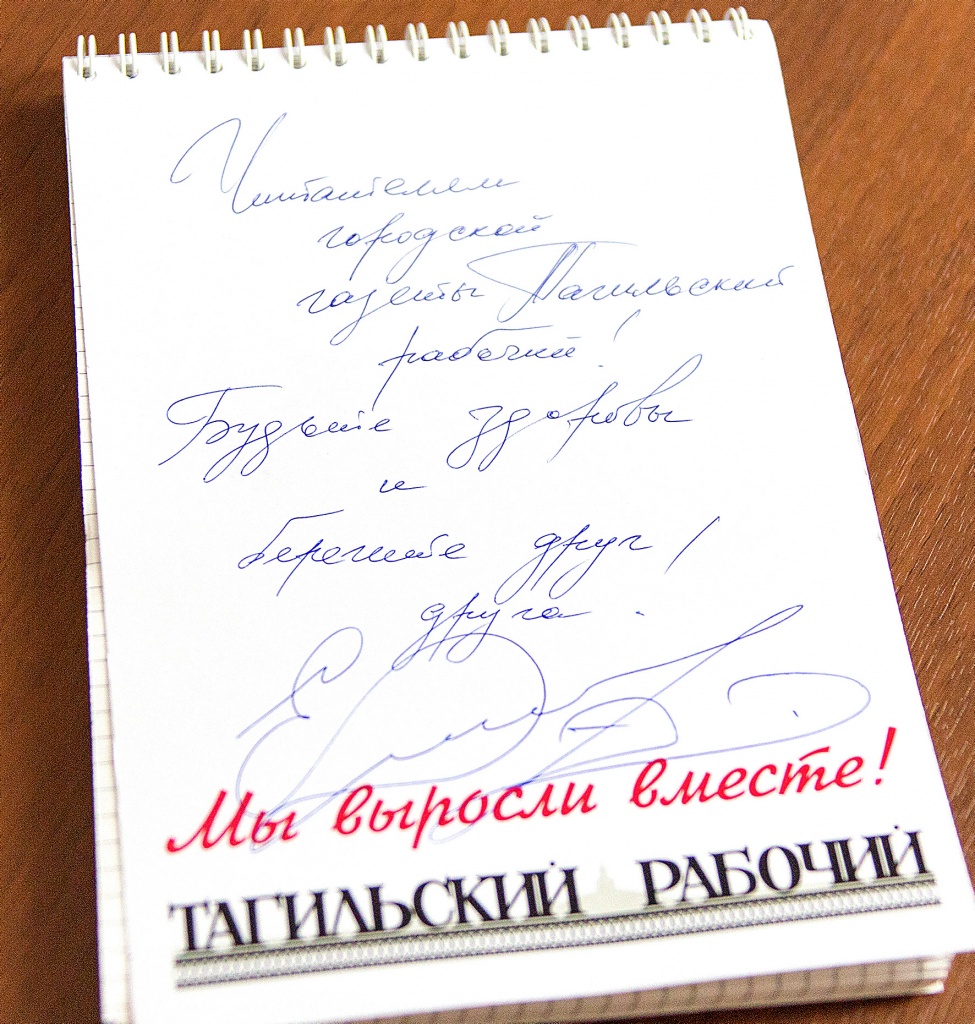 Читателям
городской
газеты Тагильский
рабочий!
Будьте здоровы
и
берегите друг
друга.
Мы выросли вместе!
ТАГИЛЬСКИЙ РАБОЧИЙ